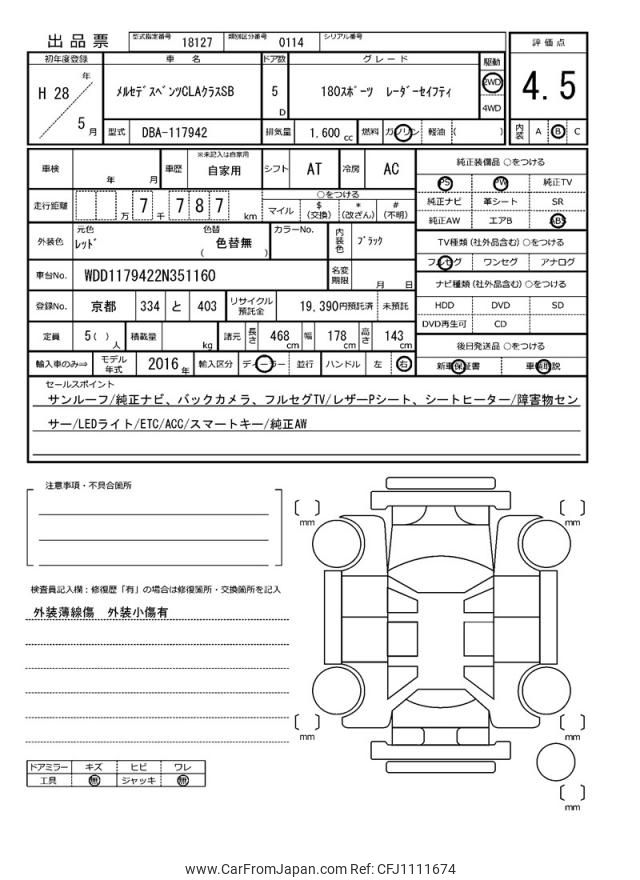 出品票 型式指定番号 18127 類別区分番号 0114 シリアル番号
評価点
4.5
内装 A B C
初年度登録 車名 ドア数 グレード 駆動
H 28 年 5 月
ﾒﾙｾﾃﾞｽﾍﾞﾝﾂCLAｸﾗｽSB 5 D 180ｽﾎﾟｰﾂ ﾚｰﾀﾞｰｾｲﾌﾃｨ 2WD
4WD
型式 DBA-117942 排気量 1,600 cc 燃料 ガソリン 軽油 ( )
車検 年 月 車歴 ※未記入は自家用 自家用 シフト AT 冷房 AC
走行距離 万 7 千 7 8 7 km
○をつける
マイル $ (交換) * (改ざん) # (不明)
外装色 元色 ﾚｯﾄﾞ 色替 ( 色替無 ) カラーNo. 内装色 ﾌﾞﾗｯｸ
車台No. WDD1179422N351160 名変期限 月 日
登録No. 京都 334 と 403 リサイクル預託金 19,390円預託済 未預託
定員 5( ) 人 積載量 kg 諸元 長さ 468 cm 幅 178 cm 高さ 143 cm
輸入車のみ⇒ モデル年式 2016 年 輸入区分 ディーラー 並行 ハンドル 左 右
純正装備品 ○をつける
PS PW 純正TV
純正ナビ 革シート SR
純正AW エアB ABS
TV種類 (社外品含む) ○をつける
フルセグ ワンセグ アナログ
ナビ種類 (社外品含む) ○をつける
HDD DVD SD
DVD再生可 CD
後日発送品 ○をつける
新車保証書 車輌取説
セールスポイント
サンルーフ/純正ナビ、バックカメラ、フルセグTV/レザーPシート、シートヒーター/障害物セン
サー/LEDライト/ETC/ACC/スマートキー/純正AW
注意事項・不具合箇所
検査員記入欄：修復歴「有」の場合は修復箇所・交換箇所を記入
外装薄線傷 外装小傷有
ドアミラー キズ ヒビ ワレ
工具 無 ジャッキ 無
mm mm
mm mm
mm
www.CarFromJapan.com Ref: CFJ1111674